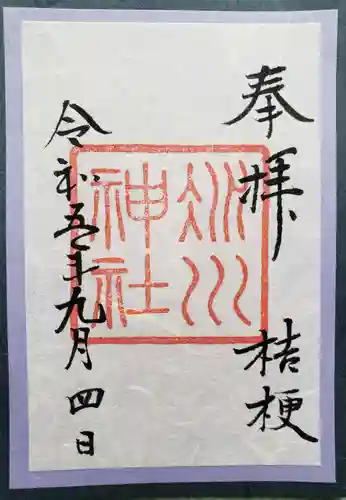 奉拝
桔梗
冰川
神社
令和五年九月四日